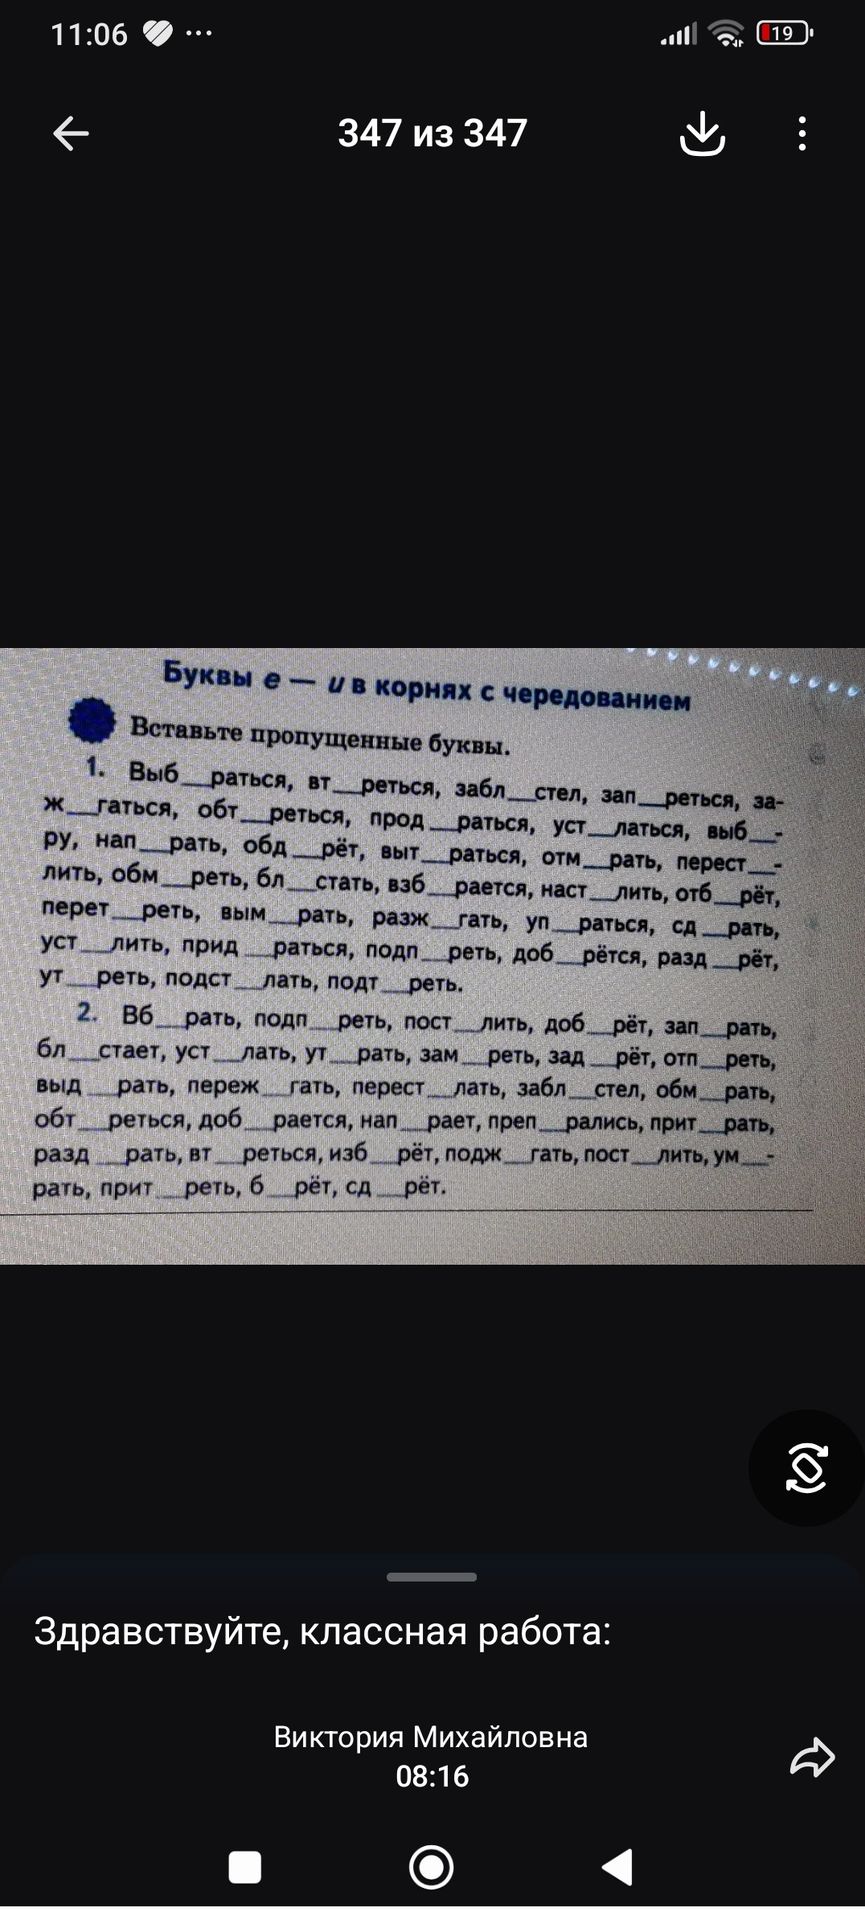 11:06 ...
19
347 из 347
Буквы е — и в корнях с чередованием
Вставьте пропущенные буквы.
1. Выб__раться, вт__реться, забл__стел, зап__реться, за-
ж__гаться, обт__реться, прод__раться, уст__латься, выб__-
ру, нап__рать, обд__рёт, выт__раться, отм__рать, перест__-
лить, обм__реть, бл__стать, взб__рается, наст__лить, отб__рёт,
перет__реть, вым__рать, разж__гать, уп__раться, сд__рать,
уст__лить, прид__раться, подп__реть, доб__рётся, разд__рёт,
ут__реть, подст__лать, подт__реть.
2. Вб__рать, подп__реть, пост__лить, доб__рёт, зап__рать,
бл__стает, уст__лать, ут__рать, зам__реть, зад__рёт, отп__реть,
выд__рать, переж__гать, перест__лать, забл__стел, обм__рать,
обт__реться, доб__рается, нап__рает, преп__рались, прит__рать,
разд__рать, вт__реться, изб__рёт, подж__гать, пост__лить, ум__-
рать, прит__реть, б__рёт, сд__рёт.
Здравствуйте, классная работа:
Виктория Михайловна
08:16